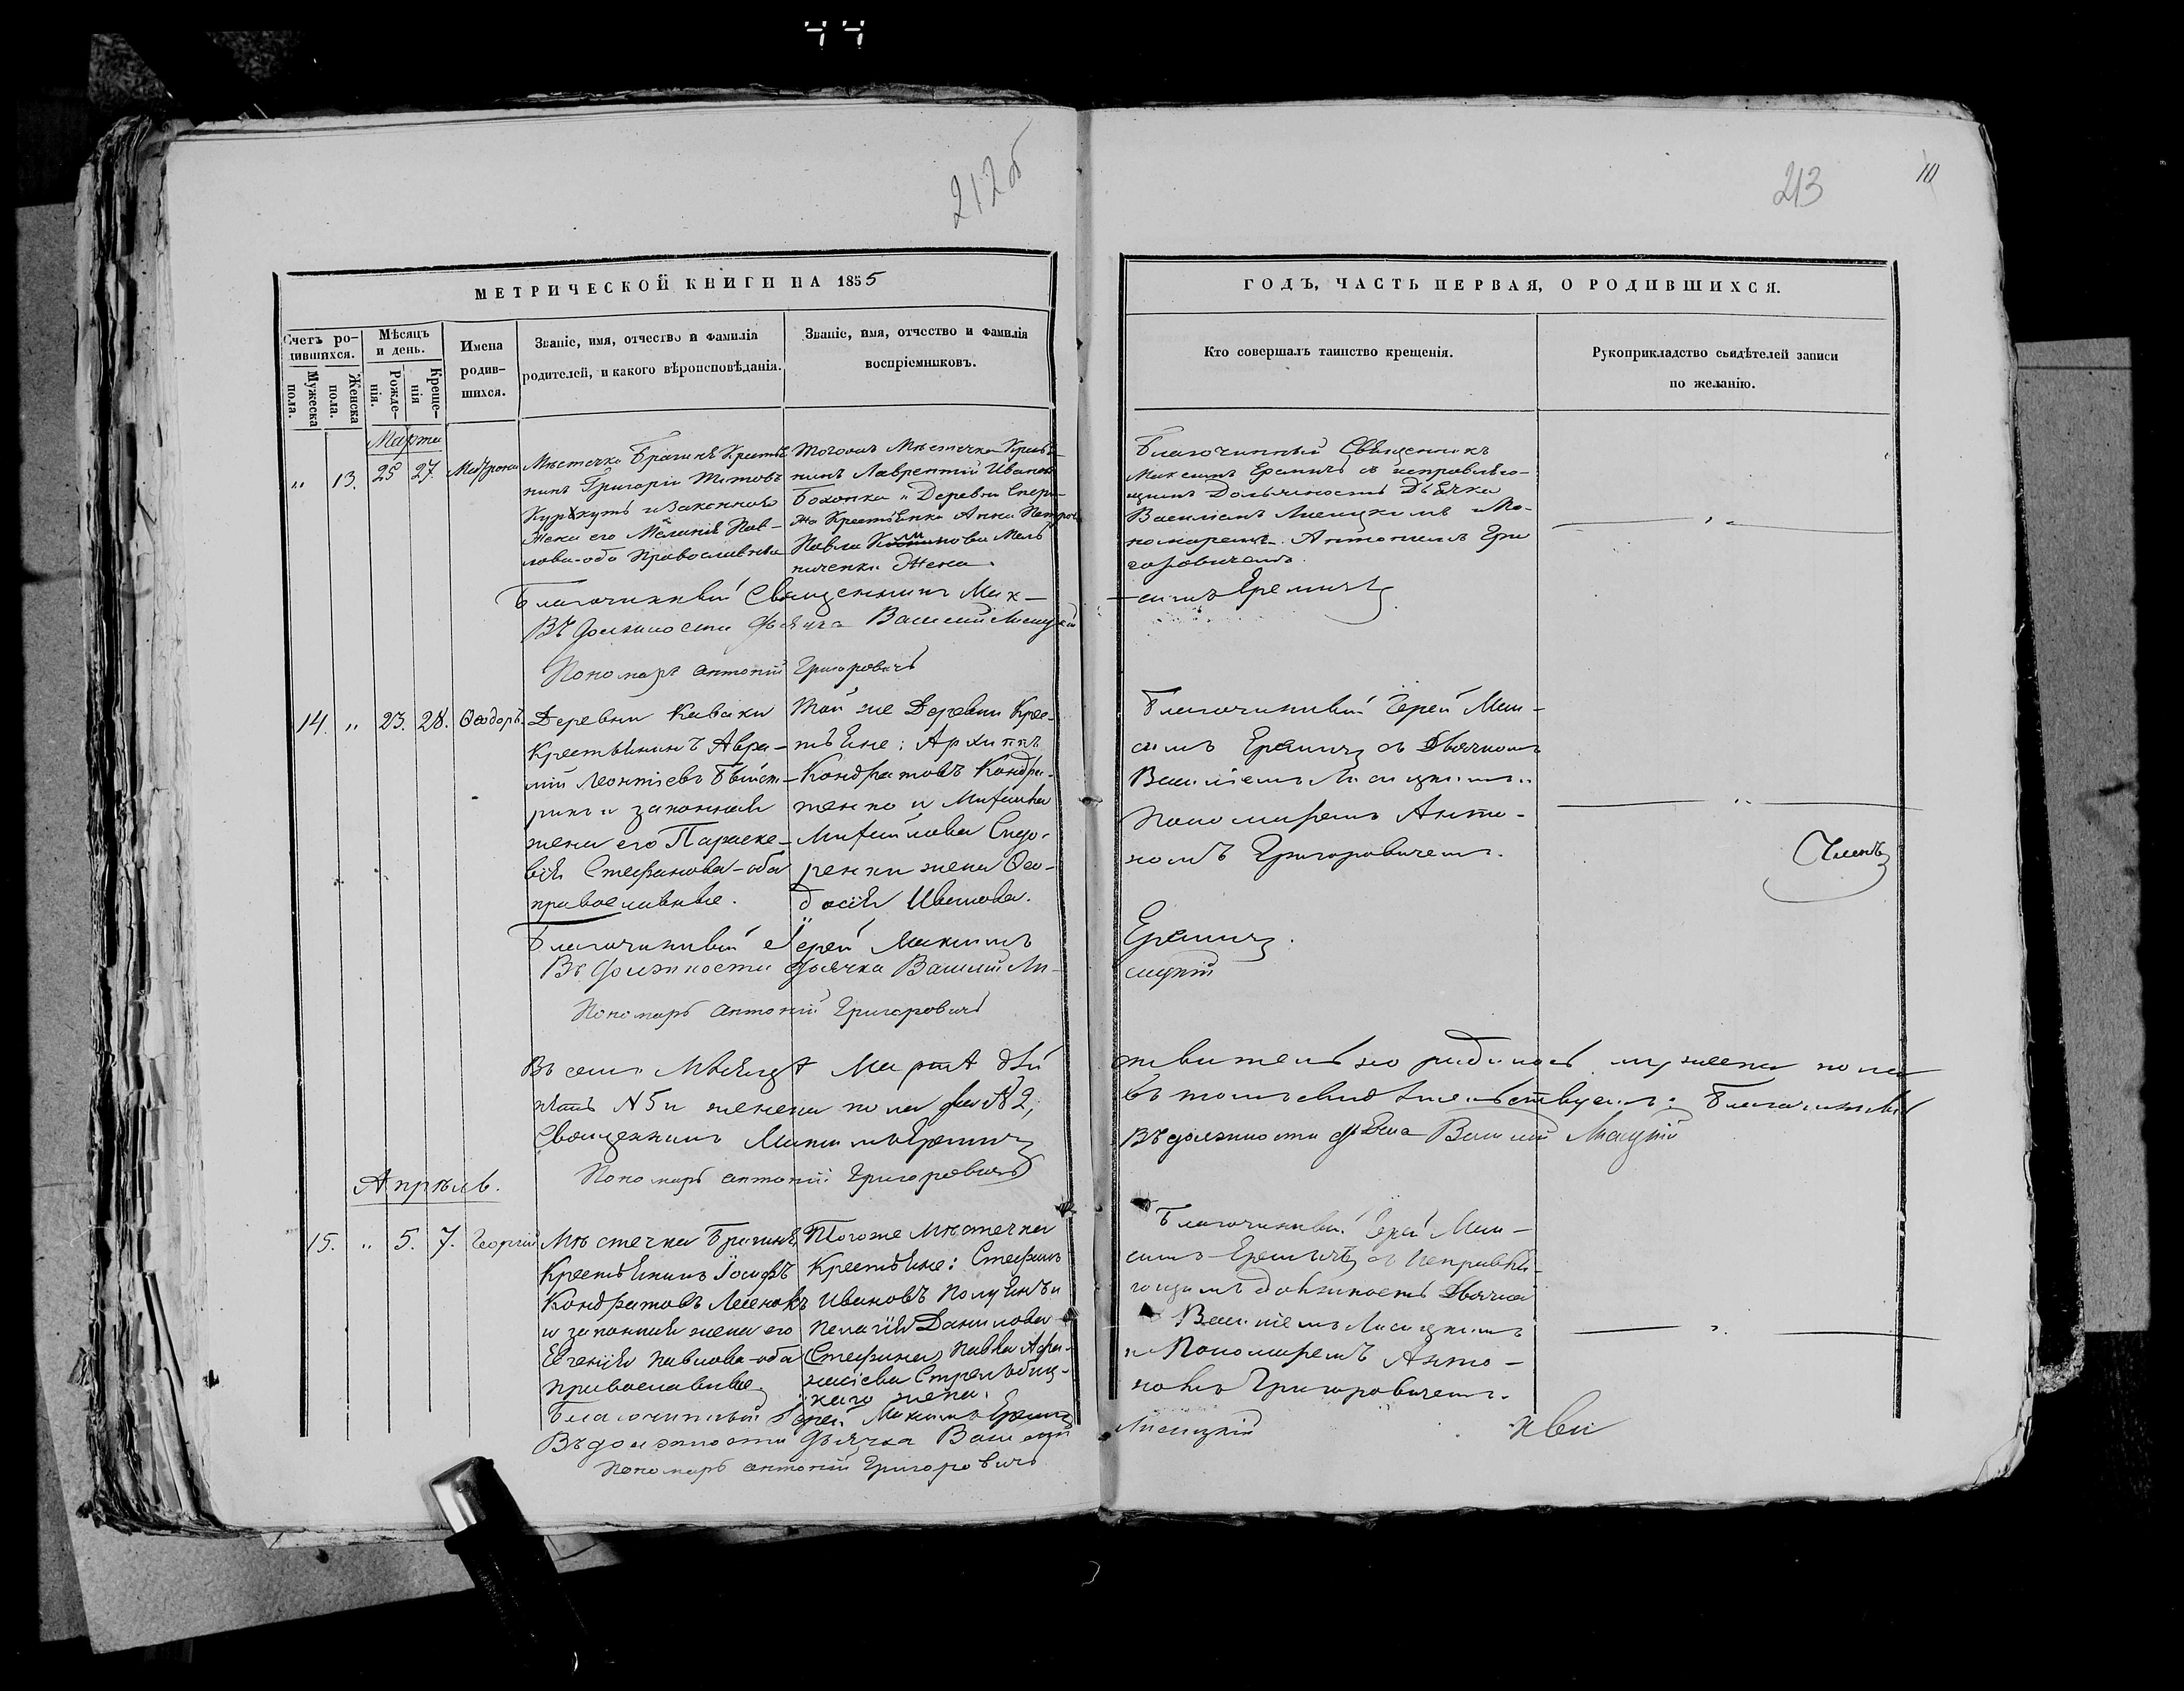 44
212об
213
111
МЕТРИЧЕСКОЙ КНИГИ НА 1855
ГОДЪ, ЧАСТЬ ПЕРВАЯ, О РОДИВШИХСЯ.
Счетъ ро-
дившихся.
Мужеска
пола.
Женска
пола.
Мѣсяцъ
и день.
Рожде-
нія.
Креще-
нія
Имена
родив-
шихся.
Званіе, имя, отчество и фамилія
родителей, и какого вѣроисповѣданія.
Званіе, имя, отчество и фамилія
воспріемниковъ.
Кто совершалъ таинство крещенія.
Рукоприкладство свидѣтелей записи
по желанію.
Марта
„ 13. 25 27. Матрона
Мѣстечка Брагинъ Крестья
нинъ Григорій Титовъ
и Законная
Жена его Меланія Пав-
лова-оба Православныя
Тогожъ Мѣстечка Кресть
нинъ Лаврентій Ивановъ
и Деревни
Крестьянка Анна Петрова
Павла
Жена
Благочинный Священникъ
Максимъ Еремичъ съ исправляю-
щимъ Должность Дьячка
Василіемъ Лисицкимъ По-
номаремъ Антоніемъ Гри
горовичемъ.
Благочинный Священникъ Мак-
симъ Еремичъ
Въ должности дьячка Василій Лисицкій
Пономарь Антоній Григоровичъ
14. „ 23. 28. Ѳеодоръ.
Деревни Каваки
Крестьянинъ Авра-
мій Леонтіевъ
и законная
жена его Параске-
вія Стефанова-оба
православные.
Той же Деревни Крес-
тьяне: Архиппъ
Кондратовъ Кондра-
тенко и Михаила
Михайлова Сидо-
ренки жена Ѳео-
досія Иванова.
Благочинный Іерей Мак-
симъ Еремичъ съ Дьячкомъ
Василіемъ Лисицкимъ и
Пономаремъ Анто-
номъ Григоровичемъ.
Членъ
Благочинный Іерей Максимъ
Еремичъ.
Въ должности дьячка Василій Ли-
сицкій
Пономарь Антоній Григоровичъ
Въ семъ Мѣсяцѣ Мартѣ дѣй
ствительно родилось мужеска пола
пять №5 и женска пола два №2,
въ томъ свидѣтельствуемъ: Благочинный
Священникъ Максимъ Еремичъ
Въ должности дьячка Василій Лисицкій
Пономарь Антоній Григоровичъ
Апрѣль.
15. „ 5. 7. Георгій
Мѣстечка Брагинъ
Крестьянинъ Іосифъ
Кондратовъ Лесенокъ
и законная жена его
Евгенія Павлова-оба
православные
Тогоже Мѣстечка
Крестьяне: Стефанъ
Ивановъ
Пелагія Данилова
Стефана Павла Афа-
насіева
жена.
Благочинный Іерей Мак-
симъ Еремичъ съ исправля-
ющимъ должность Дьячка
Василіемъ Лисицкимъ
и Пономаремъ Анто-
номъ Григоровичемъ.
Благочинный Іерей Максимъ Еремичъ
Въ должности дьячка Василій
Лисицкій
Пономарь Антоній Григоровичъ